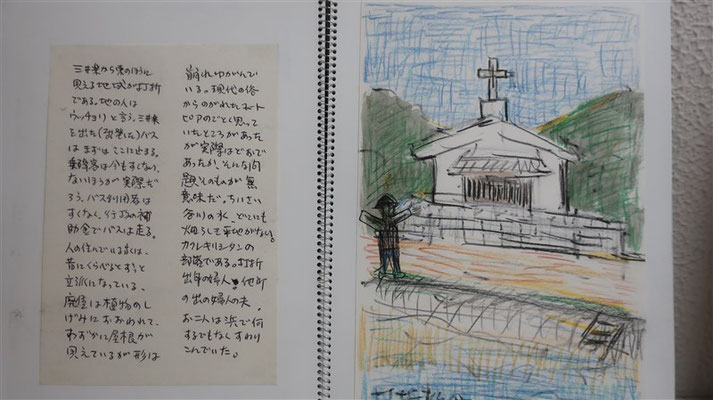 三井楽から東のほうに
見える地域が打折
である。地の人は
ウッチョリと言う。三井楽
を出た(出発した)バス
はまずはここに止まる。
乗降客は今もすくない。
ないほうが実際だ
ろう。バス利用者は
すくなく、行政の補
助金でバスは走る。
人の住んでいる家は、
昔にくらべるとずっと
立派になっている。
廃屋は植物のし
げみにおおわれて、
わずかに屋根が
見えているが形は
崩れゆがんで
いる。現代の俗
からのがれたユート
ピアのごとく思って
いたところがあった
が実際はどおで
あったか、そんな問
題そのものが無
意味だ。ちいさい
谷川の水、どこにも
畑らしき平地がない。
カクレキリシタンの
部落である。打折
出身の婦人、他所
の出の婦人の夫、
お二人は浜で何
するでもなくすわり
こんでいた。